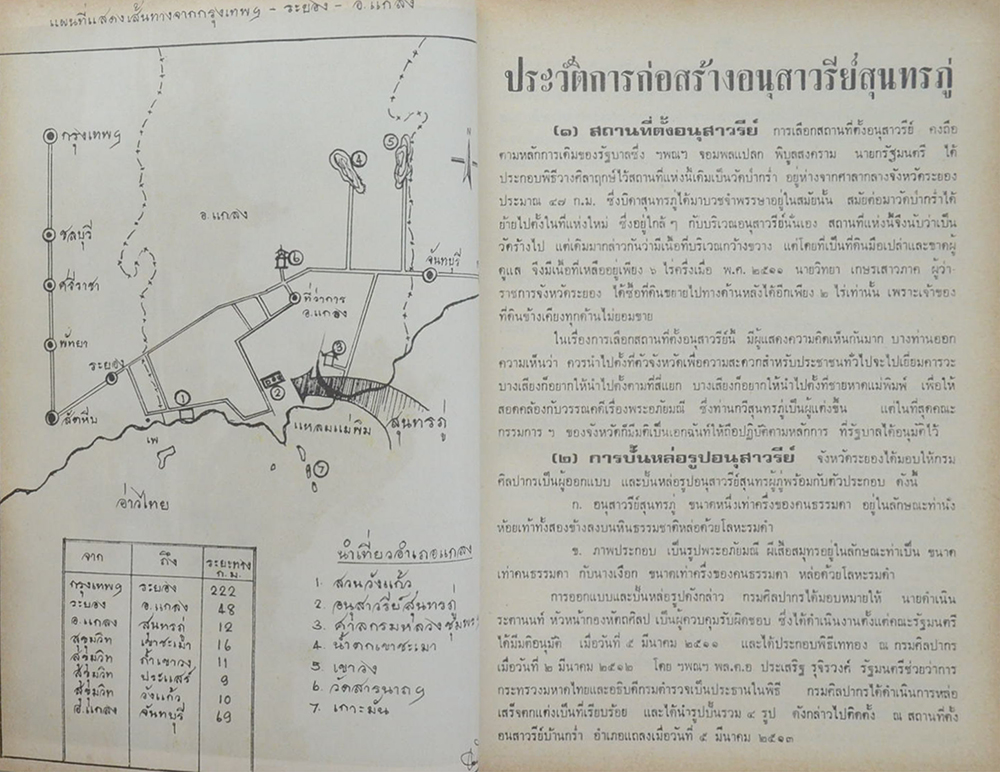 แผนที่แสดงเส้นทางจากกรุงเทพฯ - ระยอง - อ.แกลง
กรุงเทพฯ
ชลบุรี
ศรีราชา
พัทยา
ระยอง
สัตหีบ
อ.แกลง
④
⑤
⑥
จันทบุรี
ที่ว่าการ
อ.แกลง
③
①
②
เพ
แหลมแม่พิมพ์
สุนทรภู่
⑦
อ่าวไทย
จาก ถึง ระยะทาง ก.ม.
กรุงเทพฯ ระยอง 222
ระยอง อ.แกลง 48
อ.แกลง สุนทรภู่ 12
สุขุมวิท เขาชะเมา 16
สุขุมวิท ถ้ำเขาวง 11
สุขุมวิท ประแสร์ 9
สุขุมวิท วังแก้ว 10
อ.แกลง จันทบุรี 69
นำเที่ยวอำเภอแกลง
1. สวนวังแก้ว
2. อนุสาวรีย์สุนทรภู่
3. ศาลกรมหลวงชุมพร
4. น้ำตกเขาชะเมา
5. เขาวง
6. วัดสารนาถฯ
7. เกาะมัน
ประวัติการก่อสร้างอนุสาวรีย์สุนทรภู่
(๑) สถานที่ตั้งอนุสาวรีย์ การเลือกสถานที่ตั้งอนุสาวรีย์ คงถือ
ตามหลักการเดิมของรัฐบาลซึ่ง ฯพณฯ จอมพลแปลก พิบูลสงคราม นายกรัฐมนตรี ได้
ประกอบพิธีวางศิลาฤกษ์ไว้สถานที่แห่งนี้เดิมเป็นวัดป่ากร่ำ อยู่ห่างจากศาลากลางจังหวัดระยอง
ประมาณ ๔๗ ก.ม. ซึ่งบิดาสุนทรภู่ได้มาบวชจำพรรษาอยู่ในสมัยนั้น สมัยต่อมาวัดป่ากร่ำได้
ย้ายไปตั้งในที่แห่งใหม่ ซึ่งอยู่ใกล้ ๆ กับบริเวณอนุสาวรีย์นั่นเอง สถานที่แห่งนี้จึงนับว่าเป็น
วัดร้างไป แต่เดิมมากล่าวกันว่ามีเนื้อที่บริเวณกว้างขวาง แต่โดยที่เป็นที่ดินมือเปล่าและขาดผู้
ดูแล จึงมีเนื้อที่เหลืออยู่เพียง ๖ ไร่ครึ่งเมื่อ พ.ศ. ๒๕๑๑ นายวิทยา เกษรเสาวภาค ผู้ว่า-
ราชการจังหวัดระยอง ได้ซื้อที่ดินขยายไปทางด้านหลังได้อีกเพียง ๒ ไร่เท่านั้น เพราะเจ้าของ
ที่ดินข้างเคียงทุกด้านไม่ยอมขาย
ในเรื่องการเลือกสถานที่ตั้งอนุสาวรีย์นี้ มีผู้แสดงความคิดเห็นกันมาก บางท่านออก
ความเห็นว่า ควรนำไปตั้งที่ตัวจังหวัดเพื่อความสะดวกสำหรับประชาชนทั่วไปจะไปเยี่ยมคารวะ
บางเสียงก็อยากให้นำไปตั้งตามที่สี่แยก บางเสียงก็อยากให้นำไปตั้งที่ชายหาดแม่พิมพ์ เพื่อให้
สอดคล้องกับวรรณคดีเรื่องพระอภัยมณี ซึ่งท่านกวีสุนทรภู่เป็นผู้แต่งขึ้น แต่ในที่สุดคณะ
กรรมการ ฯ ของจังหวัดก็มีมติเป็นเอกฉันท์ให้ถือปฏิบัติตามหลักการ ที่รัฐบาลได้อนุมัติไว้
(๒) การปั้นหล่อรูปอนุสาวรีย์ จังหวัดระยองได้มอบให้กรม
ศิลปากรเป็นผู้ออกแบบ และปั้นหล่อรูปอนุสาวรีย์สุนทรผู้ภู่พร้อมกับตัวประกอบ ดังนี้
ก. อนุสาวรีย์สุนทรภู่ ขนาดหนึ่งเท่าครึ่งของคนธรรมดา อยู่ในลักษณะท่านั่ง
ห้อยเท้าทั้งสองข้างลงบนหินธรรมชาติหล่อด้วยโลหะรมดำ
ข. ภาพประกอบ เป็นรูปพระอภัยมณี ผีเสื้อสมุทรอยู่ในลักษณะท่าเป็น ขนาด
เท่าคนธรรมดา กับนางเงือก ขนาดเท่าครึ่งของคนธรรมดา หล่อด้วยโลหะรมดำ
การออกแบบและปั้นหล่อรูปดังกล่าว กรมศิลปากรได้มอบหมายให้ นายดำเนิน
ระดานนท์ หัวหน้ากองหัตถศิลป เป็นผู้ควบคุมรับผิดชอบ ซึ่งได้ดำเนินงานตั้งแต่คณะรัฐมนตรี
ได้มีมติอนุมัติ เมื่อวันที่ ๕ มีนาคม ๒๕๑๑ และได้ประกอบพิธีเททอง ณ กรมศิลปากร
เมื่อวันที่ ๒ มีนาคม ๒๕๑๒ โดย ฯพณฯ พล.ต.อ ประเสริฐ รุจิรวงศ์ รัฐมนตรีช่วยว่าการ
กระทรวงมหาดไทยและอธิบดีกรมตำรวจเป็นประธานในพิธี กรมศิลปากรได้ดำเนินการหล่อ
เสร็จตกแต่งเป็นที่เรียบร้อย และได้นำรูปปั้นรวม ๔ รูป ดังกล่าวไปติดตั้ง ณ สถานที่ตั้ง
อนุสาวรีย์บ้านกร่ำ อำเภอแกลงเมื่อวันที่ ๕ มีนาคม ๒๕๑๓